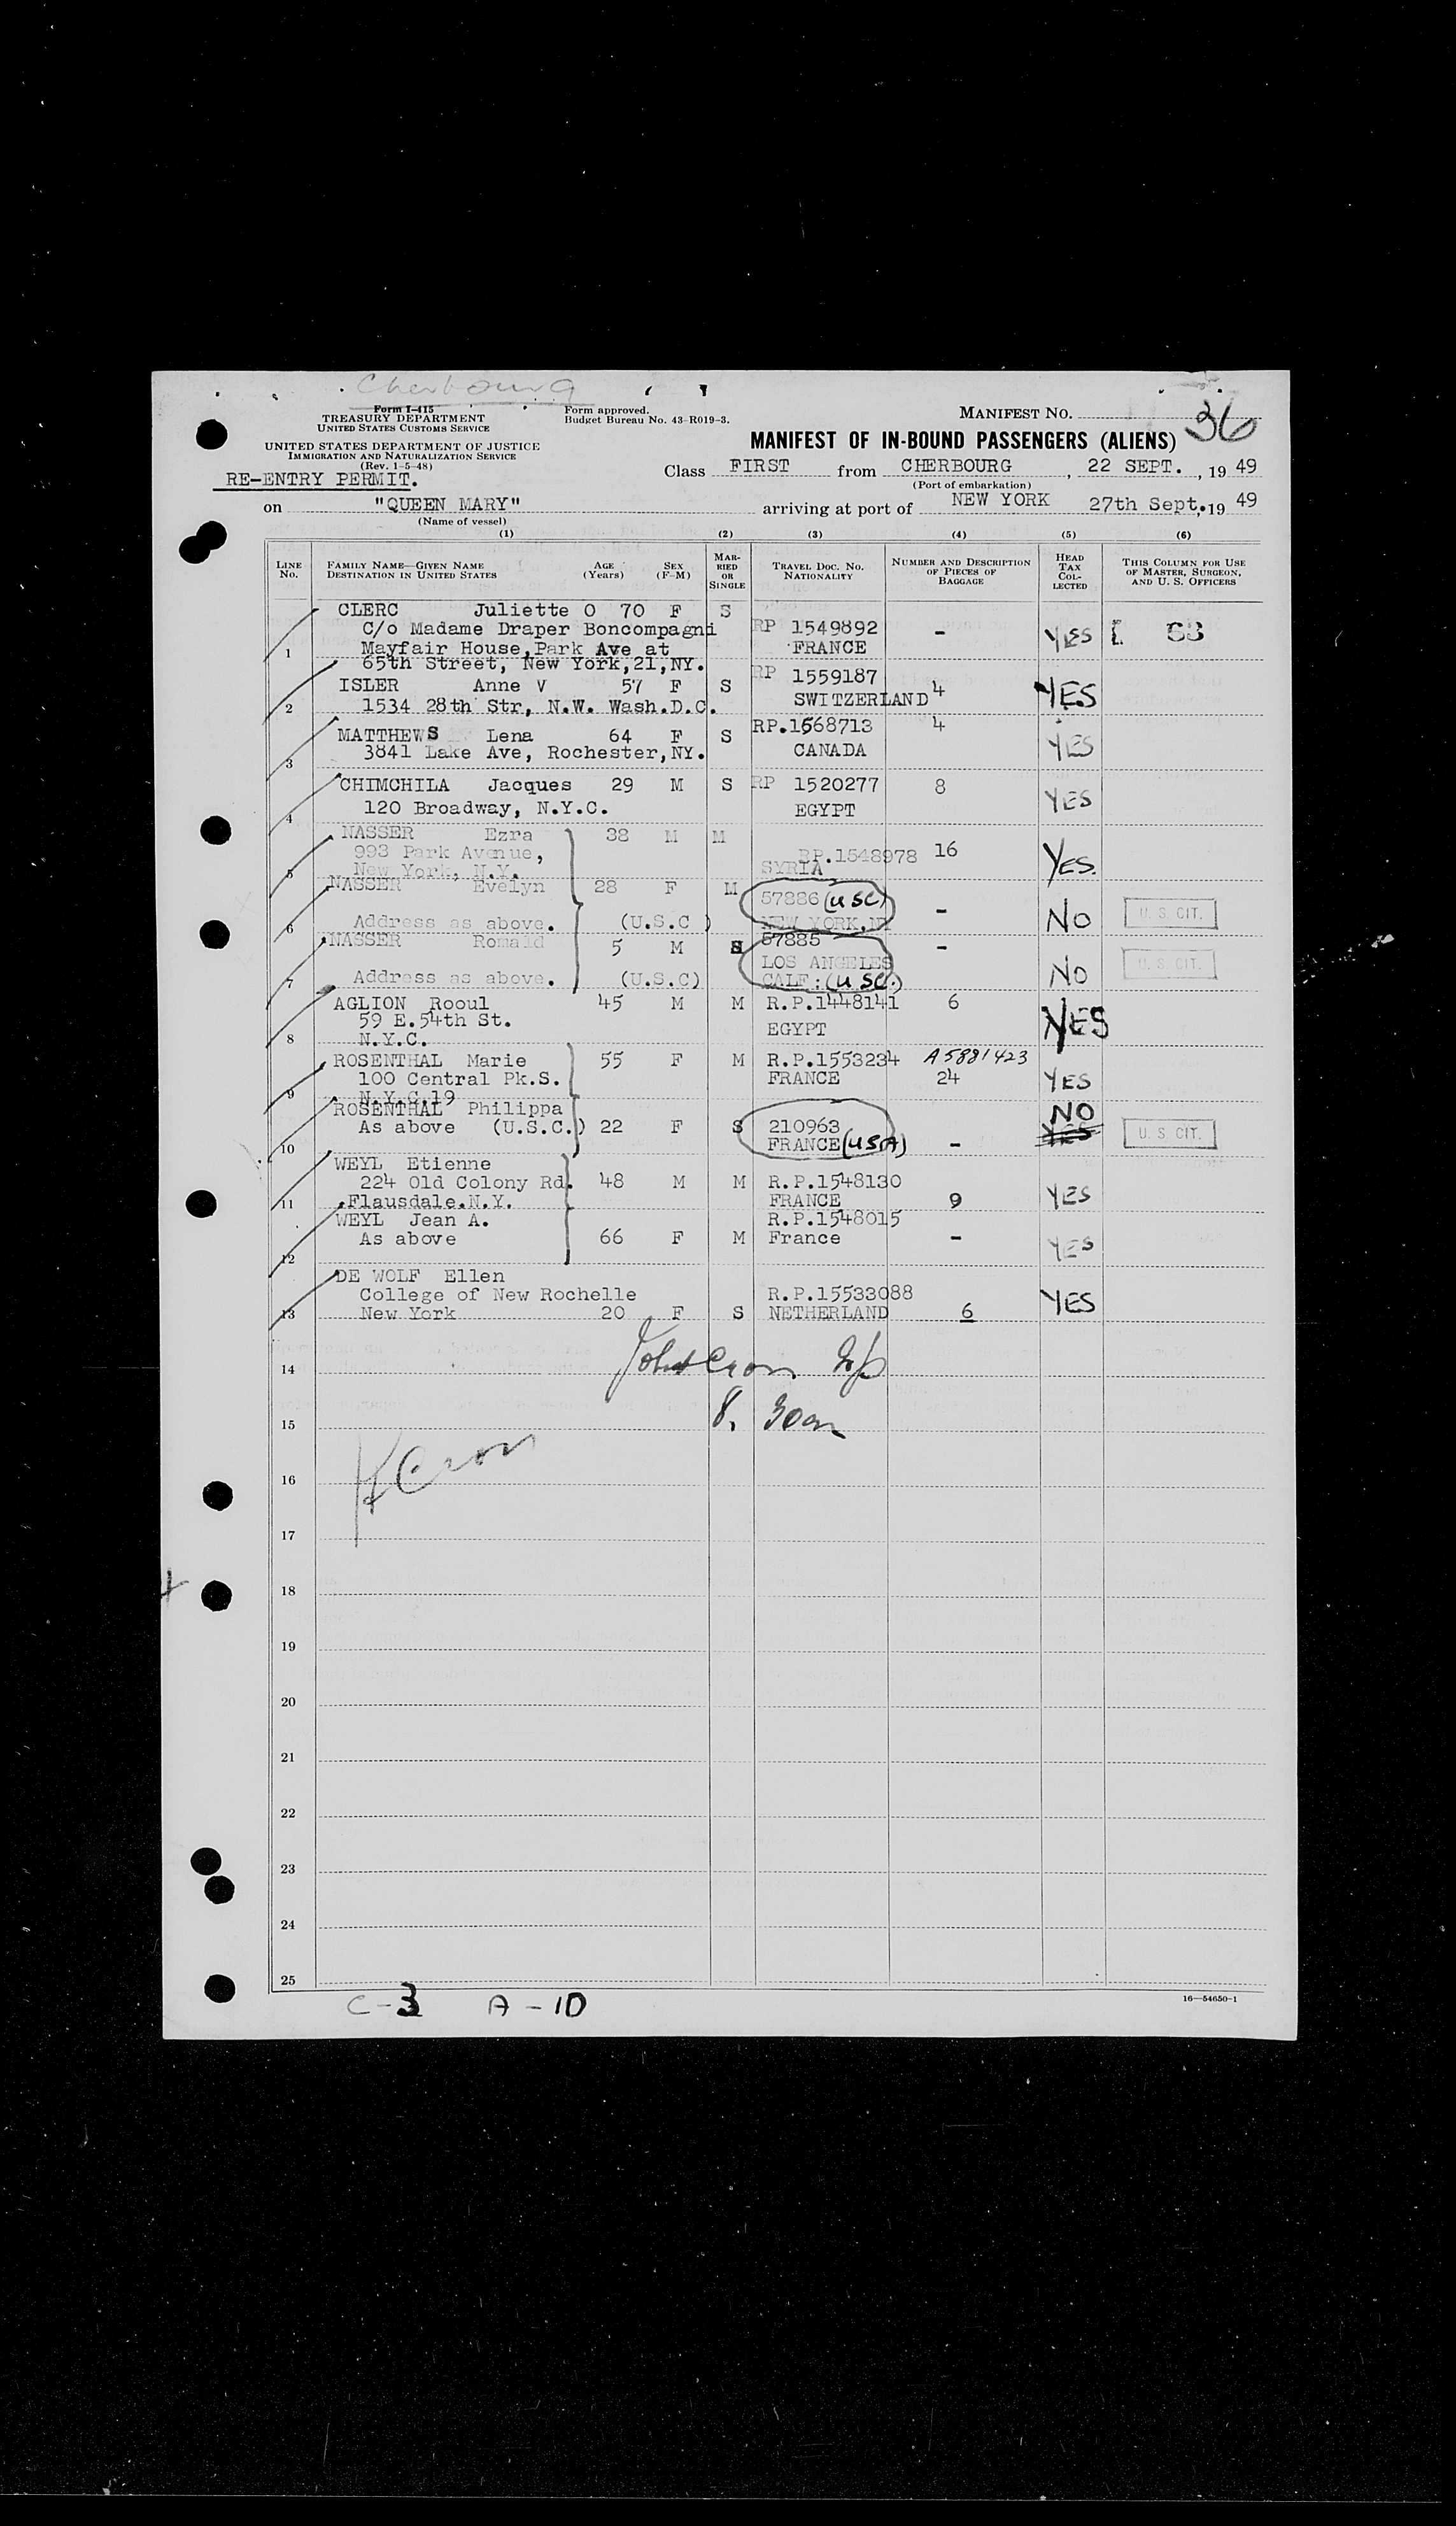 Cherbourg
Form I-415
TREASURY DEPARTMENT
UNITED STATES CUSTOMS SERVICE
UNITED STATES DEPARTMENT OF JUSTICE
IMMIGRATION AND NATURALIZATION SERVICE
(Rev. 1-5-48)
RE-ENTRY PERMIT.
Form approved.
Budget Bureau No. 43-R019-3.
MANIFEST NO. 36
MANIFEST OF IN-BOUND PASSENGERS (ALIENS)
Class FIRST from CHERBOURG, 22 SEPT., 19 49
(Port of embarkation)
on "QUEEN MARY" arriving at port of NEW YORK 27th Sept. 19 49
(Name of vessel)
(1) (2) (3) (4) (5) (6)
LINE No. FAMILY NAME—GIVEN NAME DESTINATION IN UNITED STATES AGE (Years) SEX (F-M) MARRIED OR SINGLE TRAVEL DOC. NO. NATIONALITY NUMBER AND DESCRIPTION OF PIECES OF BAGGAGE HEAD TAX COLLECTED THIS COLUMN FOR USE OF MASTER, SURGEON, AND U. S. OFFICERS
CLERC Juliette O 70 F S
C/o Madame Draper Boncompagni RP 1549892 - YES
1 Mayfair House, Park Ave at FRANCE
65th Street, New York, 21, NY.
ISLER Anne V 57 F S RP 1559187 4 YES
2 1534 28th Str, N.W. Wash.D.C. SWITZERLAND
MATTHEWS Lena 64 F S RP.1568713 4 YES
3 3841 Lake Ave, Rochester, NY. CANADA
CHIMCHILA Jacques 29 M S RP 1520277 8 YES
4 120 Broadway, N.Y.C. EGYPT
NASSER Ezra 38 M M
993 Park Avenue, RP.1548978 16 YES.
5 New York, N.Y. SYRIA
NASSER Evelyn 28 F M 57886 (USC) - NO U. S. CIT.
6 Address as above. (U.S.C ) NEW YORK, NY
NASSER Romald 5 M S 57885 - NO U. S. CIT.
LOS ANGELES
7 Address as above. (U.S.C) CALF: (USC.)
AGLION Rooul 45 M M R.P.1448141 6 YES
59 E.54th St. EGYPT
8 N.Y.C.
ROSENTHAL Marie 55 F M R.P.1553234 A5881423
100 Central Pk.S. FRANCE 24 YES
9 N.Y.C.19
ROSENTHAL Philippa NO
As above (U.S.C.) 22 F S 210963 YES U. S. CIT.
10 FRANCE (USA) -
WEYL Etienne
224 Old Colony Rd. 48 M M R.P.1548130 YES
11 Flausdale.N.Y. FRANCE 9
WEYL Jean A. R.P.1548015
As above 66 F M France - YES
12
DE WOLF Ellen
College of New Rochelle R.P.15533088 YES
13 New York 20 F S NETHERLAND 6
14
8. 30am
15
16
17
18
19
20
21
22
23
24
25
C-3 A-10
16—54650-1